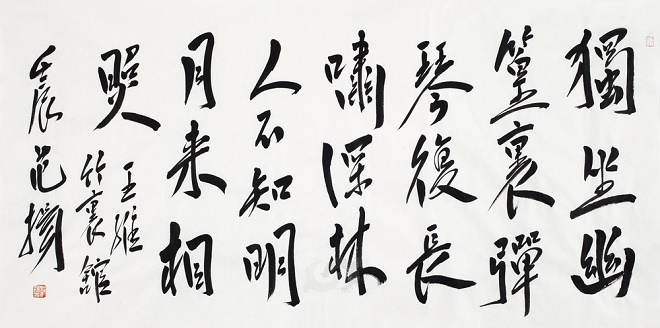 獨坐幽
篁裏彈
琴復長
嘯深林
人不知明
月来相
照
王維
竹裏館
壬辰范揚